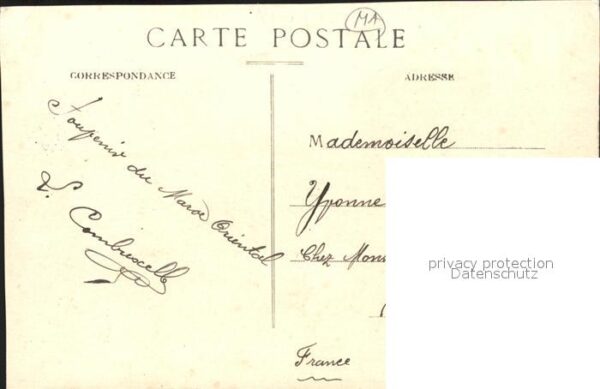 MA
CARTE POSTALE
CORRESPONDANCE
ADRESSE
Souvenir du Maroc Oriental
Mademoiselle
Yvonne
Chez Mons
France
privacy protection
Datenschutz